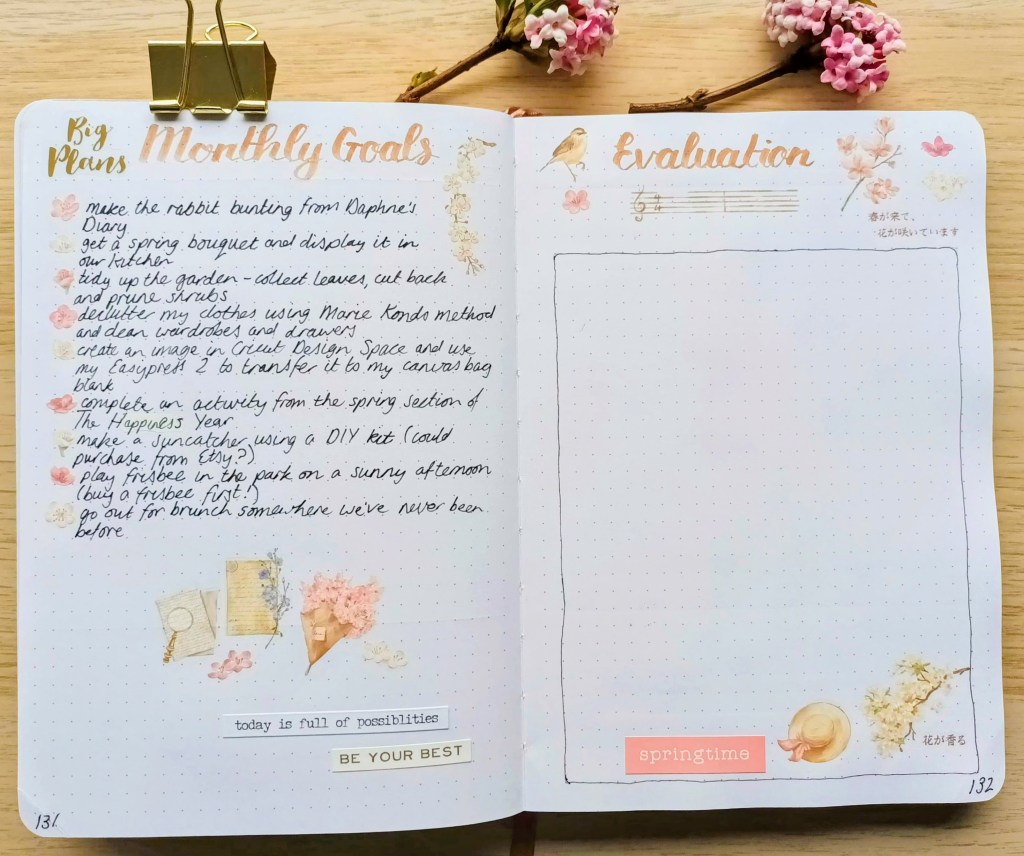 Big
Plans
Monthly Goals
make the rabbit bunting from Daphne's
Diary
get a spring bouquet and display it in
our kitchen
tidy up the garden - collect leaves, cut back
and prune shrubs
declutter my clothes using Marie Kondo method
and clean wardrobes and drawers
create an image in Cricut Design Space and use
my Easypress 2 to transfer it to my canvas bag
blank
complete an activity from the spring section of
The Happiness Year
make a suncatcher using a DIY kit (could
purchase from Etsy?)
play frisbee in the park on a sunny afternoon
(buy a frisbee first!)
go out for brunch somewhere we've never been
before
today is full of possiblities
BE YOUR BEST
131
Evaluation
春が来て、
花が咲いています
springtime
花が香る
132